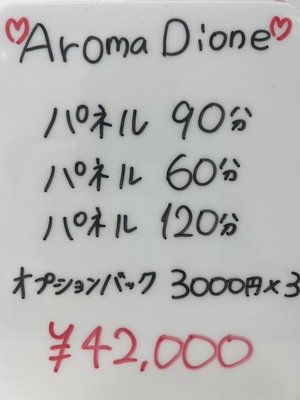 ♡Aroma Dione♡
パネル 90分
パネル 60分
パネル 120分
オプションバック 3000円×3
¥42,000